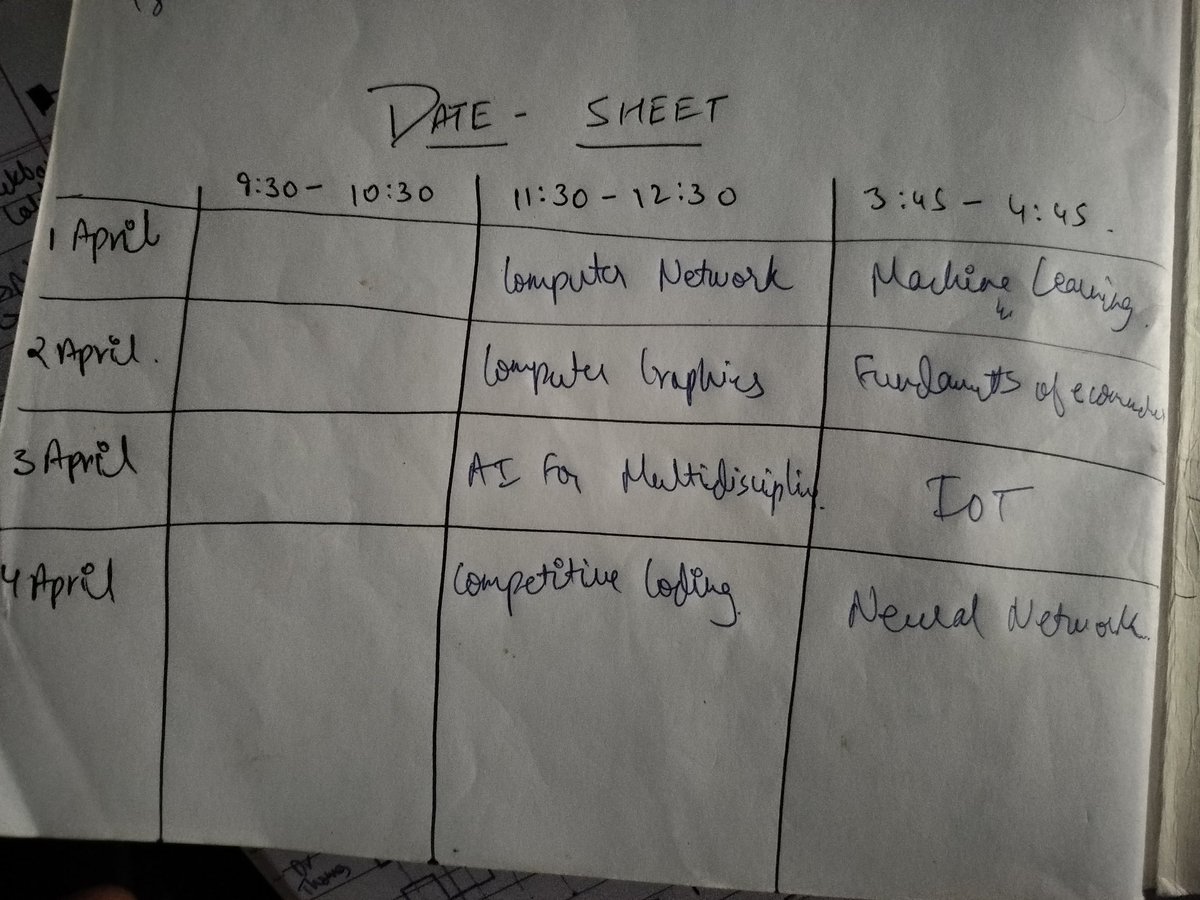 DATE - SHEET
9:30 - 10:30 11:30 - 12:30 3:45 - 4:45.
1 April Computer Network Machine Learning.
2 April. Computer Graphics of
3 April AI For Multidisciplin. IoT
4 April Competitive Coding. Neural Network.
Dr